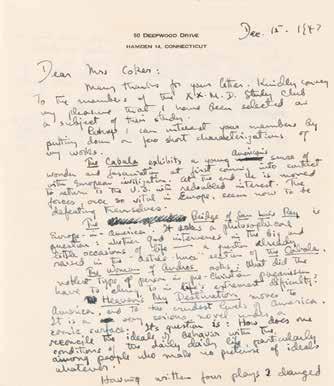 50 DEEPWOOD DRIVE
HAMDEN 14, CONNECTICUT
Dec. 12, 1947
Dear Mrs Coker:
Many thanks for your letter. Kindly convey
to the members of the X.X.M.D. Study Club
my pleasure that I have been selected as
a subject of their study.
Perhaps I can interest your members by
putting down a few short characterizations of
my works.
The Cabala exhibits a young American's sense of
wonder and fascination at first coming into contact
with European civilization; at the end he is moved
to return to the U.S. with redoubled interest. The
forces, once so vital in Europe, seem now to be
defeating themselves.
The Bridge of San Luis Rey is
Europe-in-America. It asks a philosophical
question: whether God intervenes in the big and
little occasions of life - a question already
raised in the last hours section of The Cabala.
The Woman of Andros asks: What did the
noblest type of person in pre-Christian paganism
have to cling to in life's extremest difficulty?
Heaven's My Destination moves to
America, and to the crudest levels of America.
It is a very serious novel under a
comic surface. Its question is: How does one
reconcile the ideals of behavior with the
conditions of the daily life, particularly
among people who make no pretense of ideals
whatever.
Having written four plays I changed